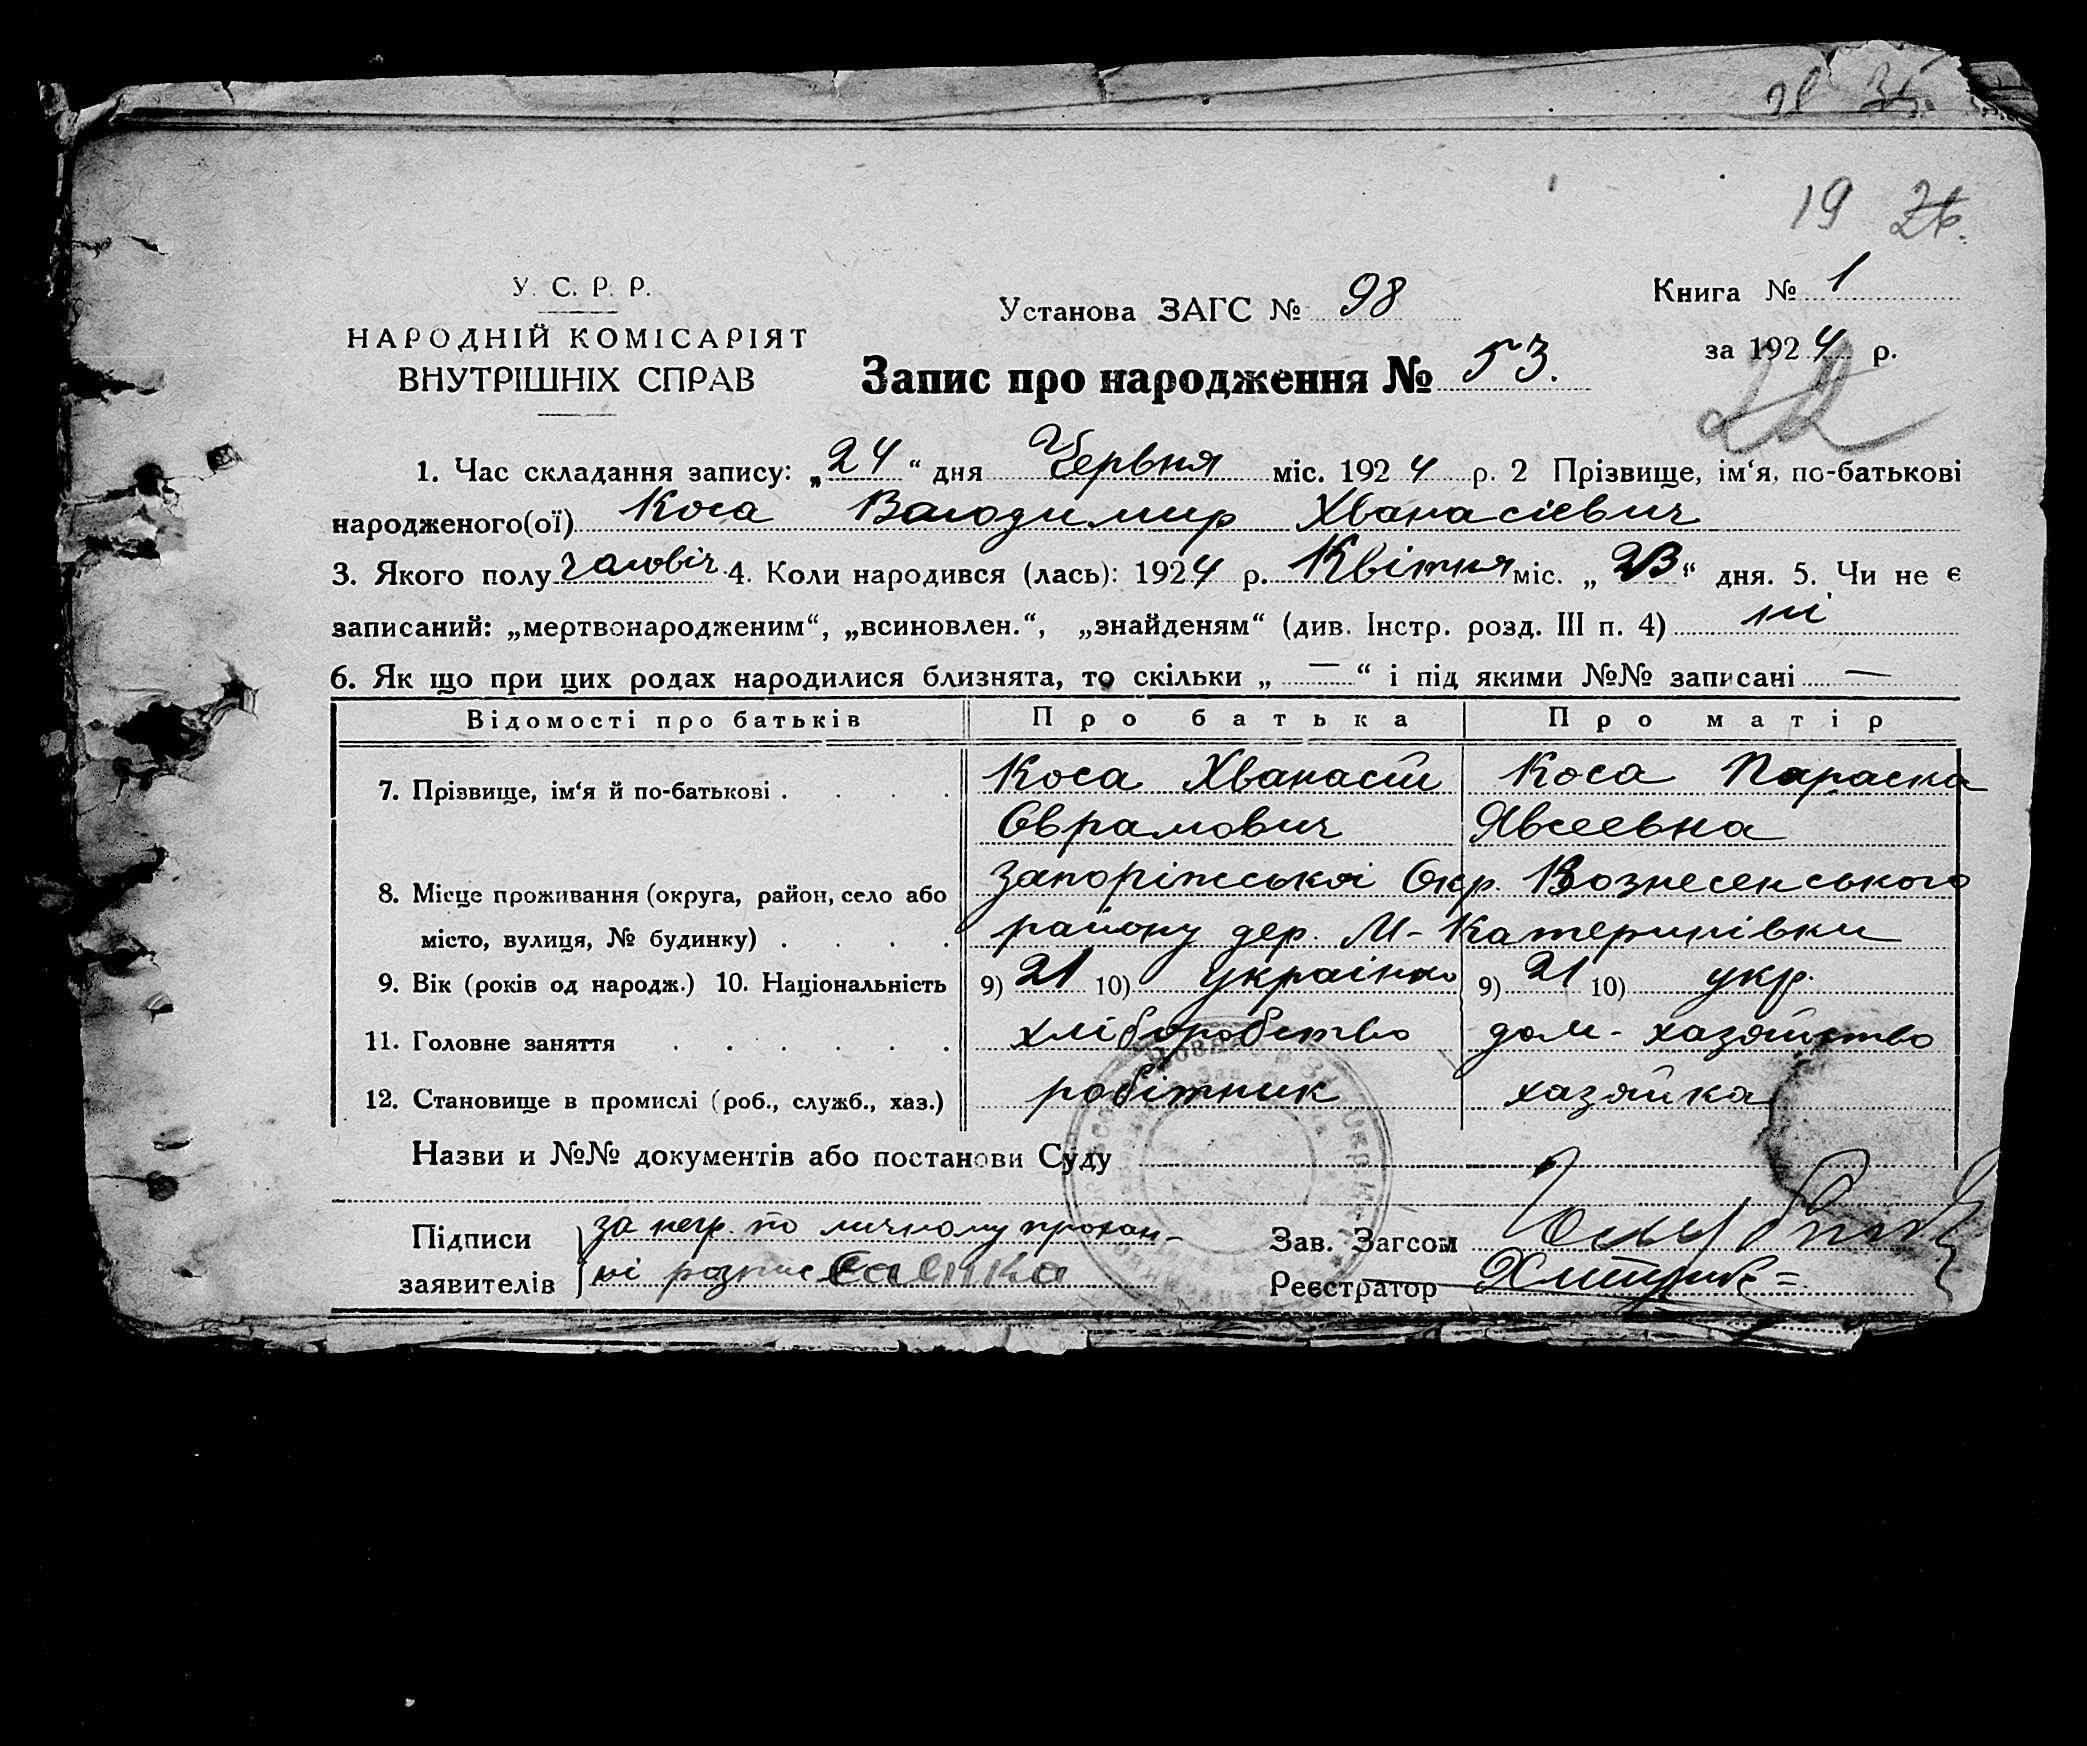 19 26.
У. С. Р. Р.
НАРОДНІЙ КОМІСАРІЯТ
ВНУТРІШНІХ СПРАВ
Установа ЗАГС № 98
Запис про народження № 53.
Книга № 1
за 1924 р.
1. Час складання запису: „24“ дня Червня міс. 1924 р. 2 Прізвище, ім‘я, по-батькові
народженого(ої) Коса Володимир Хванасієвич
3. Якого полу чоловіч. 4. Коли народився (лась): 1924 р. Квітня міс. „23“ дня. 5. Чи не є
записаний: „мертвонародженим“, „всиновлен.“, „знайденям“ (див. Інстр. розд. III п. 4) ні
6. Як що при цих родах народилися близнята, то скільки „ — “ і під якими №№ записані —
Відомості про батьків Про батька Про матір
7. Прізвище, ім‘я й по-батькові . . . . Коса Хванасій Коса Параска
Оврамович Явсеевна
8. Місце проживання (округа, район, село або Запоріжської Окр. Вознесенського
місто, вулиця, № будинку) . . . . району дер. М-Катеринівки
9. Вік (років од народж.) 10. Національність 9) 21 10) 9) 21 10) укр.
11. Головне заняття . . . . . . хліборобство дом-хазяйство
12. Становище в промислі (роб., служб., хаз.) робітник хазяйка
Назви и №№ документів або постанови Суду
Підписи за негр. по личному прохан-
заявителів ні розпис
Зав. Загсом
Реєстратор